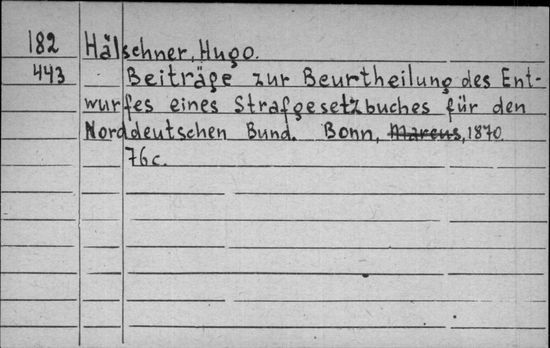 182 Hälschner, Hugo.
443 Beiträge zur Beurtheilung des Ent-
wurfes eines Strafgesetzbuches für den
Norddeutschen Bund. Bonn, Marcus, 1870.
76 c.